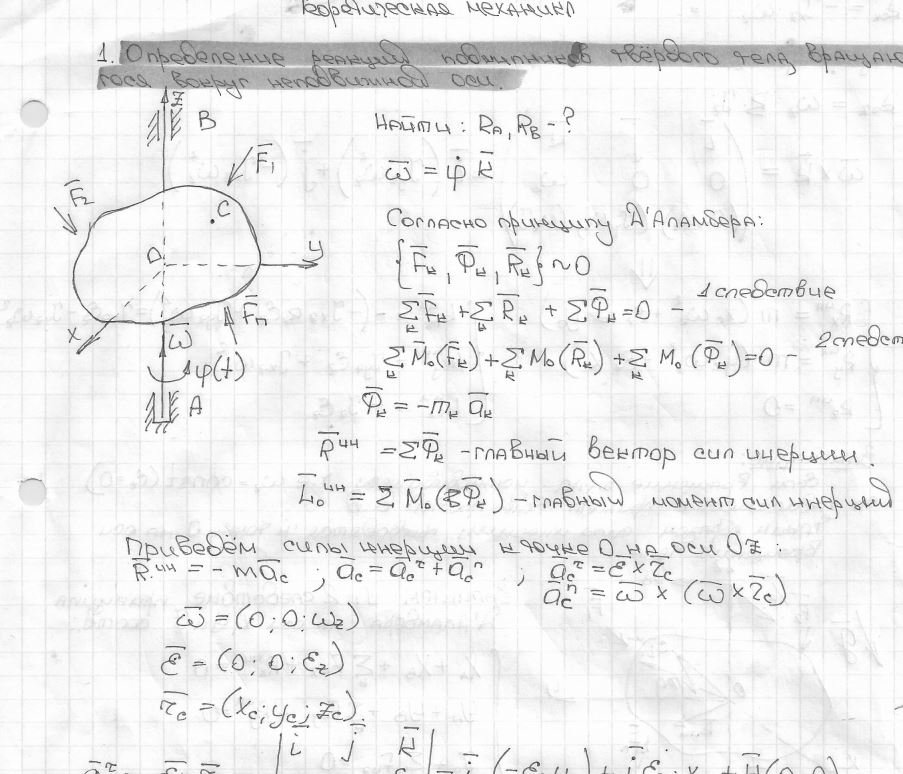 Теоретическая механика
1. Определение реакций подшипников твёрдого тела, вращаю
гося вокруг неподвижной оси.
z
B
Найти: R_A, R_B - ?
F̄₁
ω̄ = φ̇ k̄
F̄₂
C
Согласно принципу Д'Аламбера:
{F̄ₖ, Φ̄ₖ, R̄ₖ} ~ 0
O
y
∑ₖ F̄ₖ + ∑ₖ R̄ₖ + ∑ Φ̄ₖ = 0 - 1 следствие
F̄ₙ
x
ω̄
∑ₖ M̄₀(F̄ₖ) + ∑ₖ M₀(R̄ₖ) + ∑ₖ M₀(Φ̄ₖ) = 0 - 2 следст
φ(t)
Φ̄ₖ = -mₖ āₖ
A
R̄ᵘᴴ = ∑Φ̄ₖ - главный вектор сил инерции.
L̄₀ᵘᴴ = ∑ M̄₀(Φ̄ₖ) - главный момент сил инерции
Приведём силы инерции к точке O на оси Oz:
R̄ᵘᴴ = -mā_c ; ā_c = ā_c^τ + ā_cⁿ ; ā_c^τ = ε̄ × r̄_c
ā_cⁿ = ω̄ × (ω̄ × r̄_c)
ω̄ = (0; 0; ω_z)
ε̄ = (0; 0; ε_z)
r̄_c = (x_c; y_c; z_c)
ī j̄ k̄